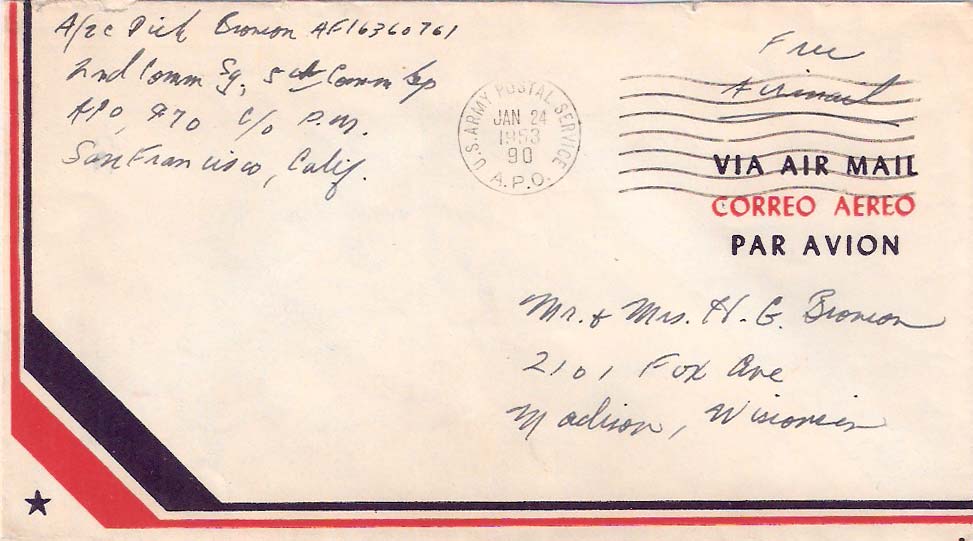 A/2c Dick Bronson AF16360761
2nd Comm Sq, 5th Comm Gp
APO, 970 c/o P.M.
San Francisco, Calif.
U.S. ARMY POSTAL SERVICE
JAN 24
1953
90
A.P.O.
Free
Airmail
VIA AIR MAIL
CORREO AEREO
PAR AVION
Mr. & Mrs. H. G. Bronson
2101 Fox Ave
Madison, Wisconsin